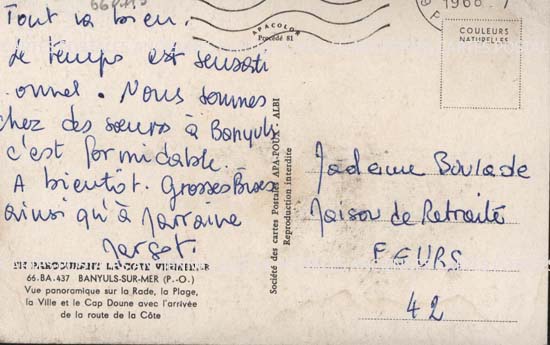 Tout va bien.
Le temps est sensati
onnel. Nous sommes
chez des sœurs à Banyuls
c'est formidable.
A bientôt. Grosses Bises
ainsi qu'à Marraine
Margot.
EN PARCOURANT LA COTE VERMEILLE
66.BA.437 BANYULS-SUR-MER (P.-O.)
Vue panoramique sur la Rade, la Plage,
la Ville et le Cap Doune avec l'arrivée
de la route de la Côte
APACOLOR
Procédé 81
Société des cartes Postales APA-POUX - ALBI
Reproduction interdite
1966
COULEURS
NATURELLES
Madame Boulade
Maison de Retraite
FEURS
42